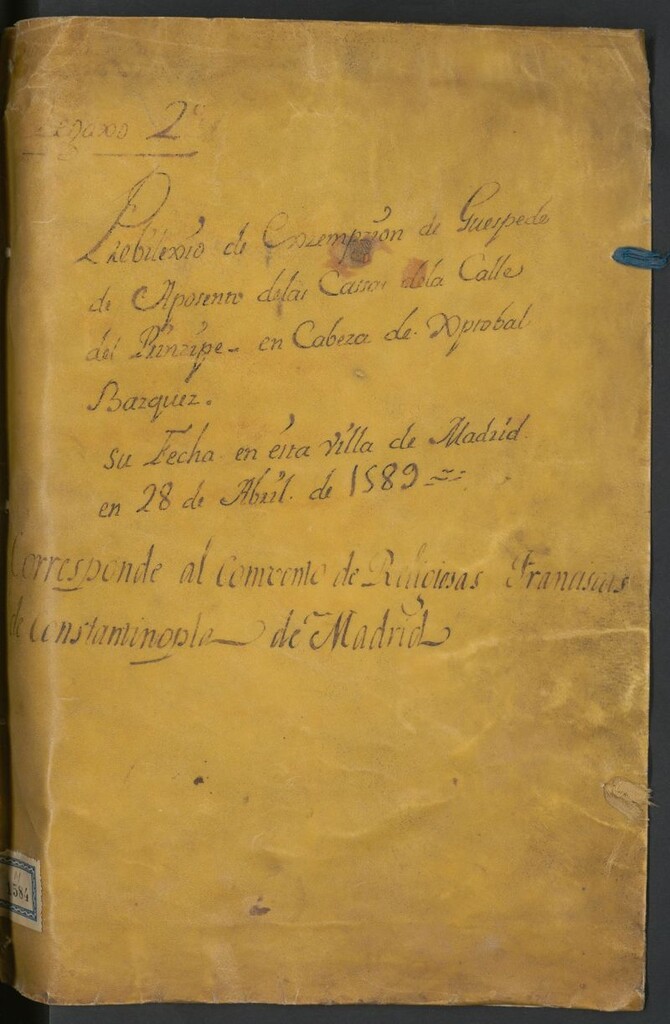 Legaxo 2º
Prebilexio de Exzempzion de Guespede
de Aposento delas Cassas dela Calle
del Prinzipe en Cabeza de Xprobal
Bazquez.
su Fecha en esta villa de Madrid
en 28 de Abril. de 1589
Corresponde al Comvento de Religiosas Franciscas
de Constantinopla de Madrid
1584